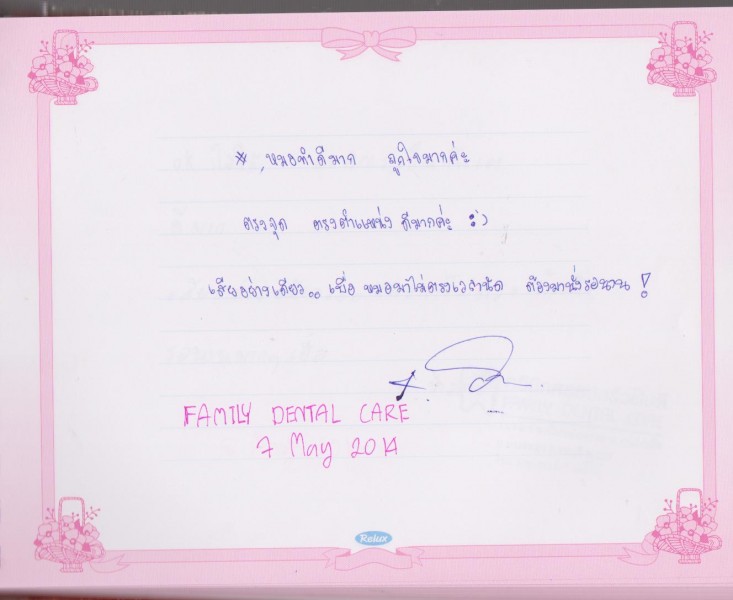 * หมอทำดีมาก ถูกใจมากค่ะ
ตรงจุด ตรงตำแหน่ง ดีมากค่ะ :)
เสียอย่างเดียว.. เบื่อ หมอมาไม่ตรงเวลานัด ต้องมานั่งรอนาน !
FAMILY DENTAL CARE
7 May 2014
Relux